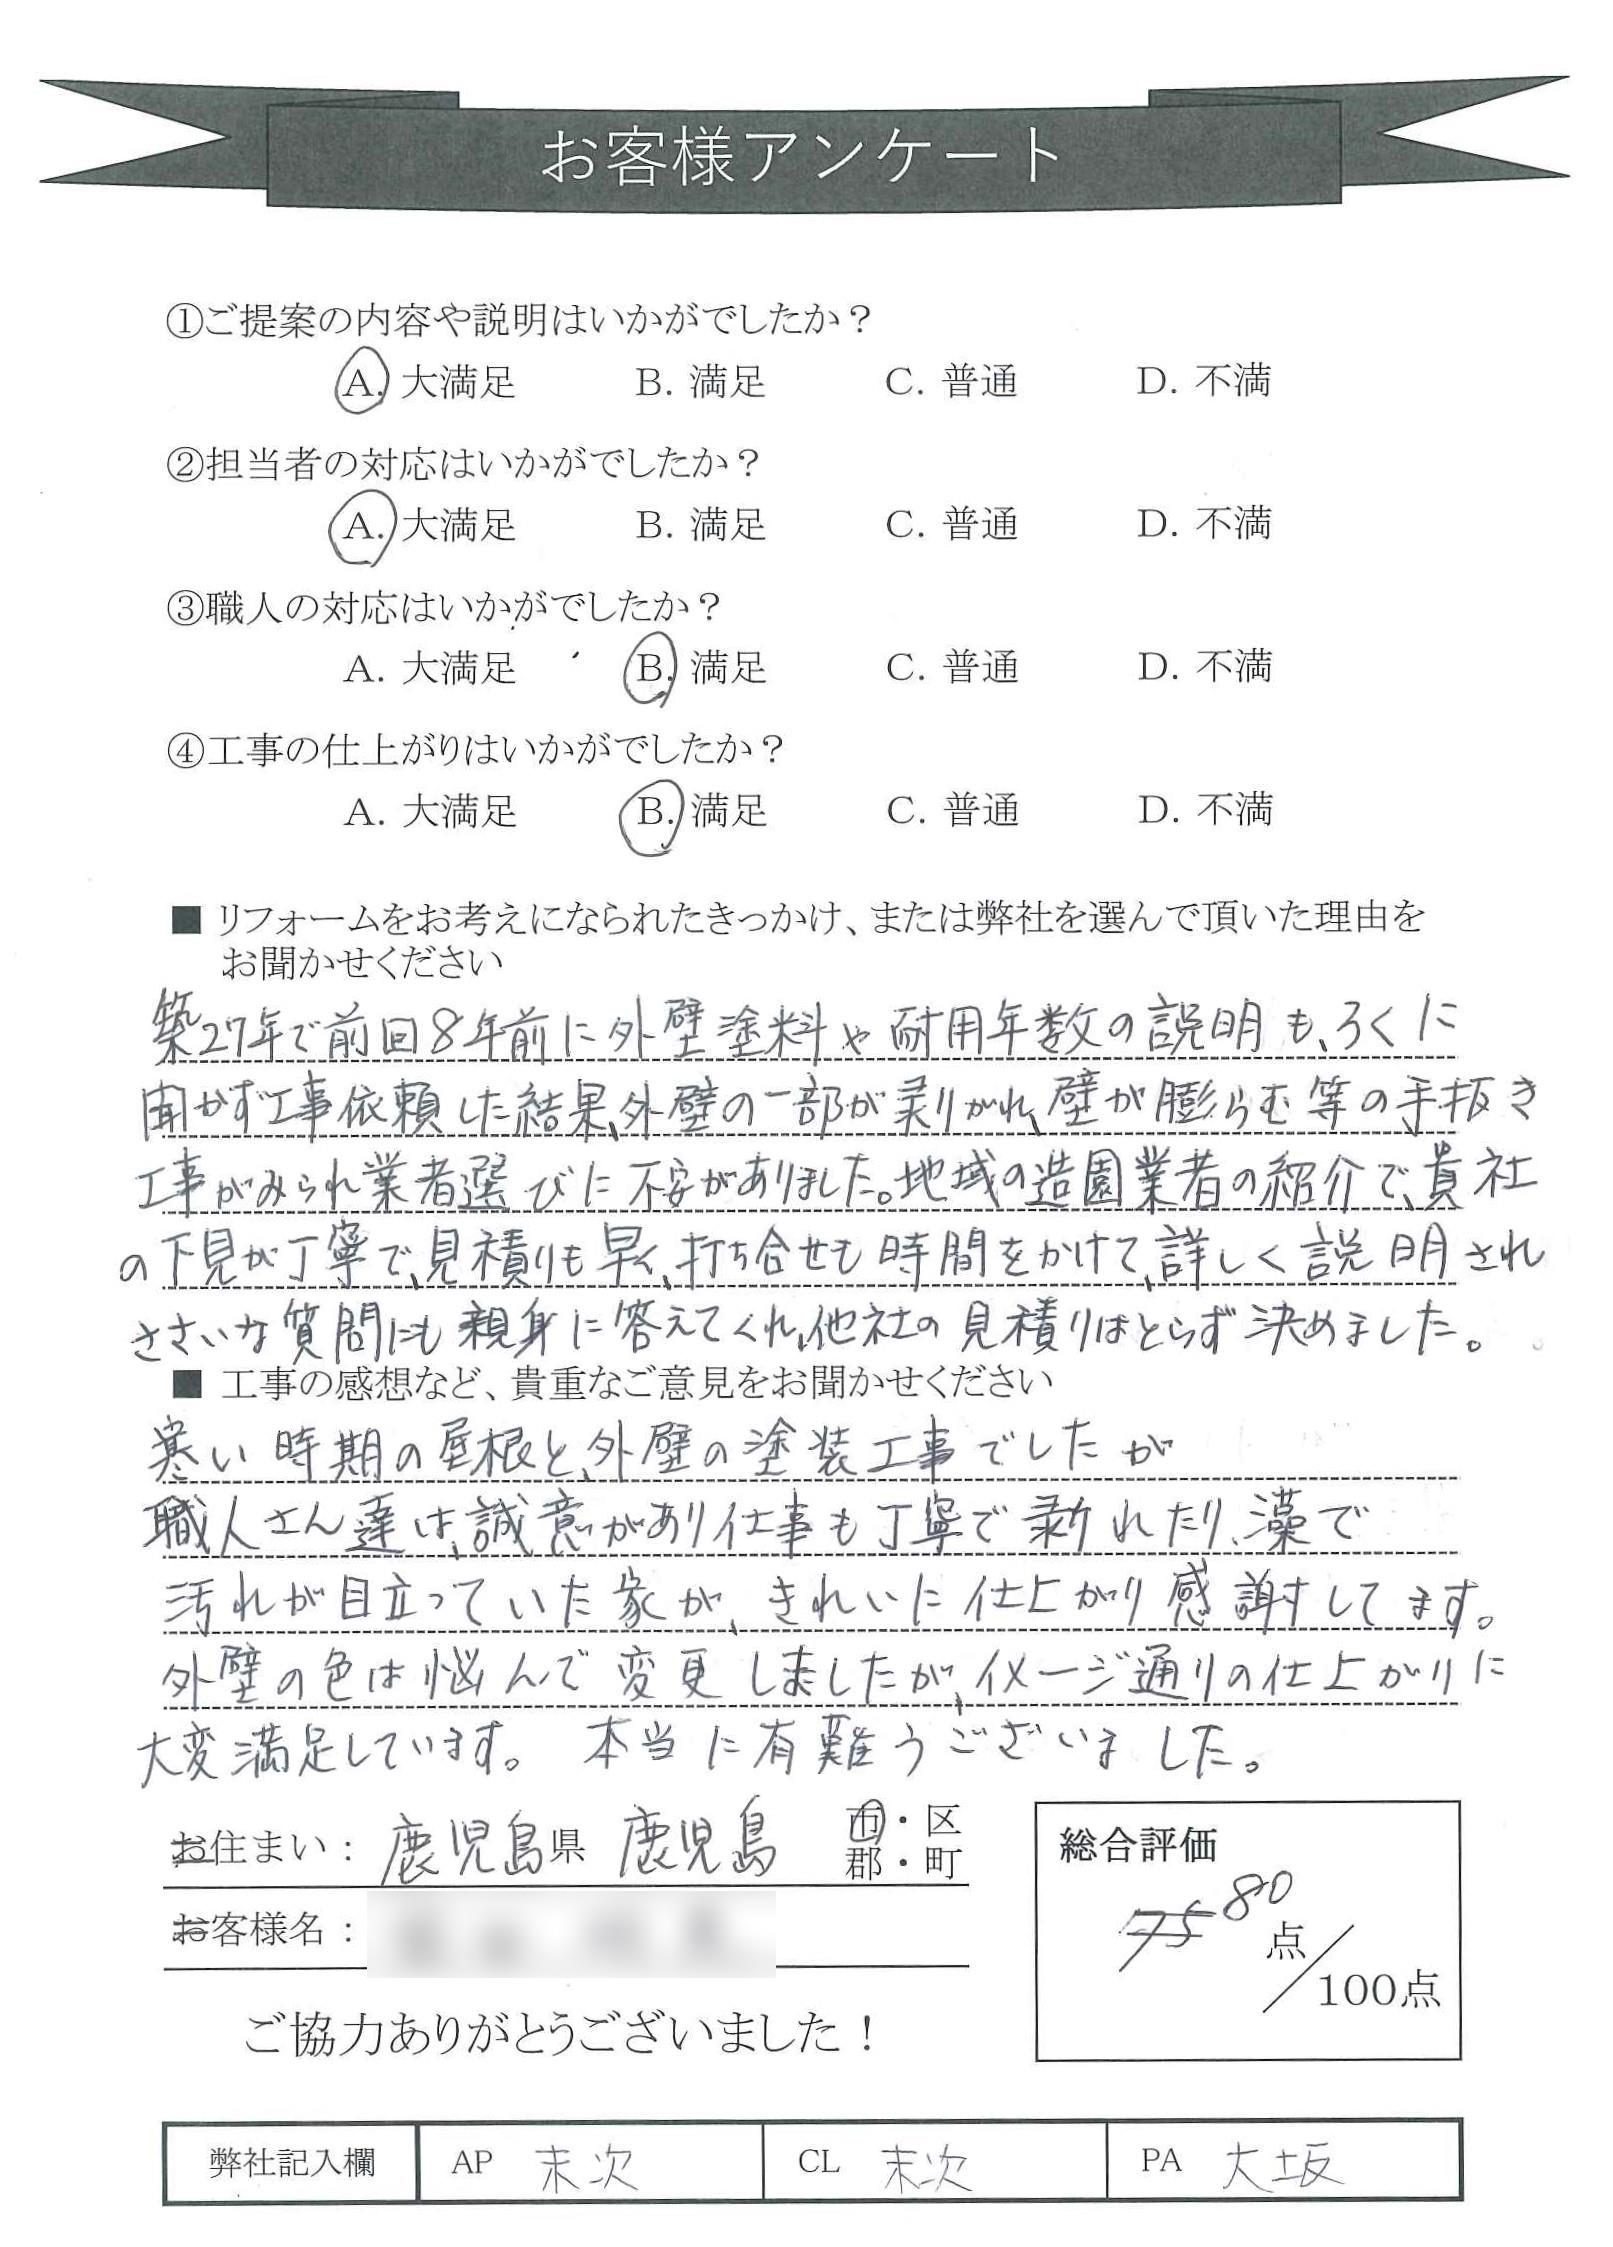 お客様アンケート
①ご提案の内容や説明はいかがでしたか？
A. 大満足 B. 満足 C. 普通 D. 不満
②担当者の対応はいかがでしたか？
A. 大満足 B. 満足 C. 普通 D. 不満
③職人の対応はいかがでしたか？
A. 大満足 B. 満足 C. 普通 D. 不満
④工事の仕上がりはいかがでしたか？
A. 大満足 B. 満足 C. 普通 D. 不満
■ リフォームをお考えになられたきっかけ、または弊社を選んで頂いた理由を
お聞かせください
築27年で前回8年前に外壁塗料や耐用年数の説明も、ろくに
聞かず工事依頼した結果、外壁の一部が剥がれ、壁が膨らむ等の手抜き
工事がみられ業者選びに不安がありました。地域の造園業者の紹介で、貴社
の下見が丁寧で、見積りも早く、打ち合せも時間をかけて、詳しく説明され
ささいな質問にも親身に答えてくれ、他社の見積りはとらず決めました。
■ 工事の感想など、貴重なご意見をお聞かせください
寒い時期の屋根と、外壁の塗装工事でしたが
職人さん達は、誠意があり仕事も丁寧で剥れたり、藻で
汚れが目立っていた家が、きれいに仕上がり感謝してます。
外壁の色は悩んで変更しましたが、イメージ通りの仕上がりに
大変満足しています。 本当に有難うございました。
お住まい： 鹿児島県 鹿児島 市・区
郡・町
お客様名：
総合評価
75 80
点
/100点
ご協力ありがとうございました！
弊社記入欄 AP 末次 CL 末次 PA 大坂